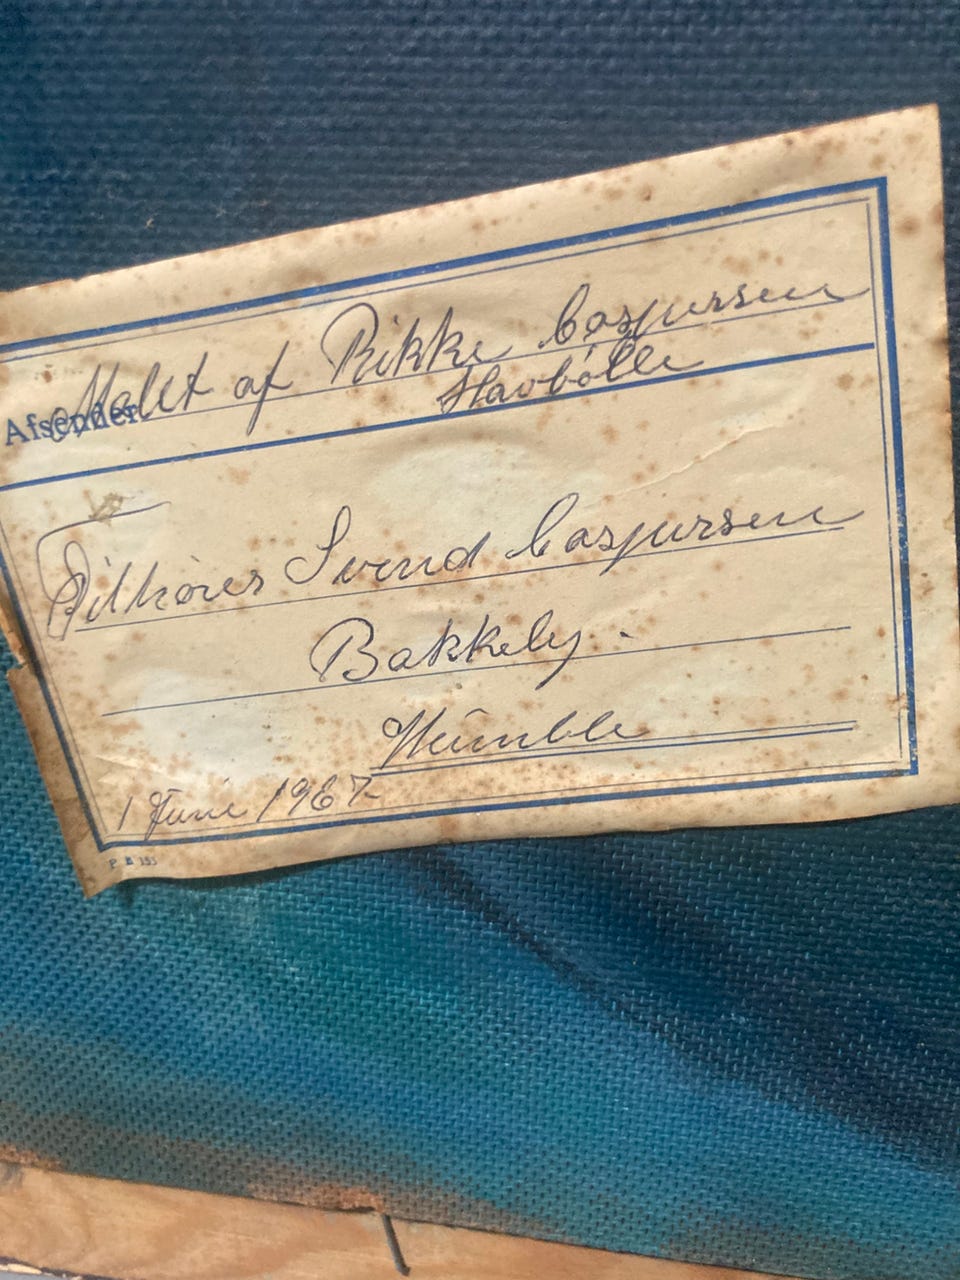 Malet af Rikke Caspersen
Afsender
Havbølle
Tilhører Svend Caspersen
Bakkely.
Humble
1 Juni 1967
P B 155